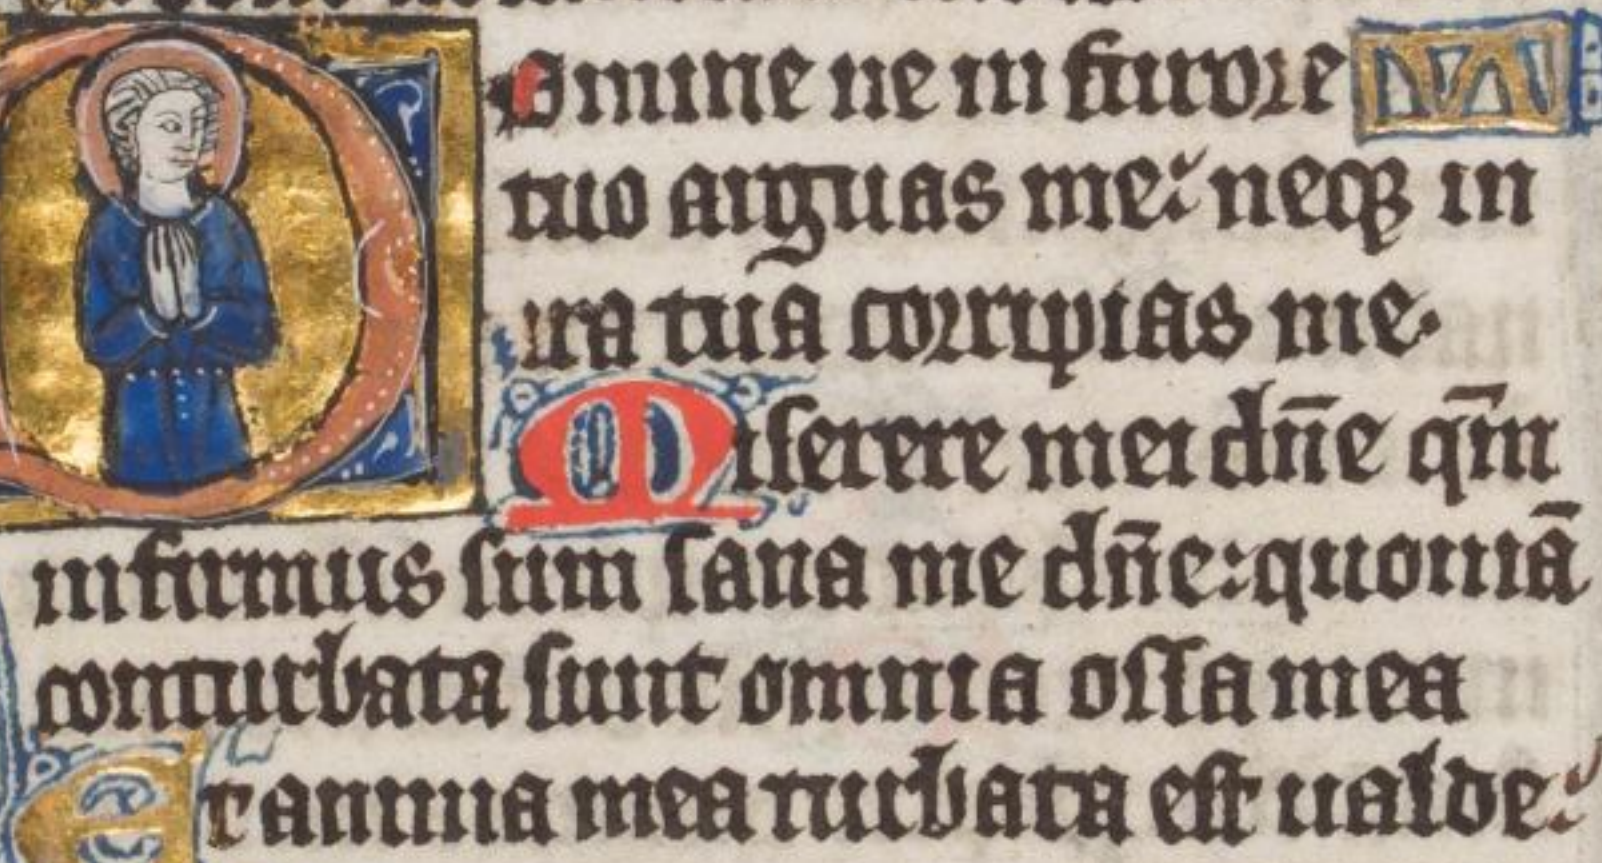 Domine ne in furore
tuo arguas me: neqꝫ in
ira tua corripias me.
Miserere mei dn̄e qm̄
infirmus sum sana me dn̄e: quoniā
conturbata sunt omnia ossa mea
Et anima mea turbata est ualde: